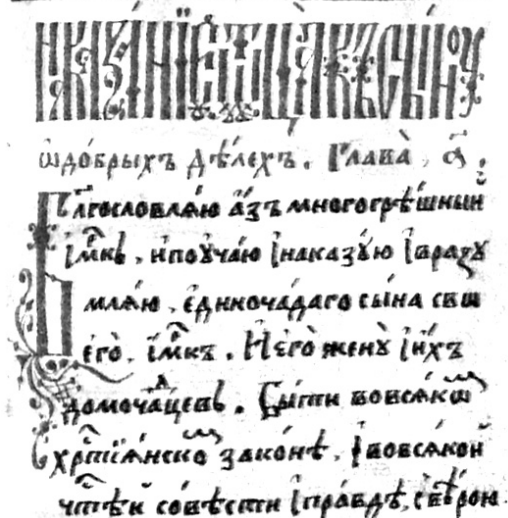 НАКАЗА́НЇЕ ѾТЦА̀ КЪ СЫ́НОУ
ѡдо́брыхъ дѣ́лехъ. Глава̀, а҃.
Блⷢ҇гословлѧ́ю а҆́зъ многогрѣ́шныи
і҆мⷬ҇къ, ипоуча́ю і҆наказꙋ́ю і҆вразꙋ
млѧ́ю, є҆диночѧ́даго сы́на сво
его̀, і҆мⷬ҇къ. Иего̀ женꙋ̀ і҆и́хъ
домочаⷣ́цевъ. Бы́ти вовсѧ́коⷨ
хрⷭ҇тїѧ́нскоⷨ зако́нѣ. І҆вовсѧ́кой
чⷭ҇тѣй со́вѣсти і҆пра́вдѣ, свѣ́рою